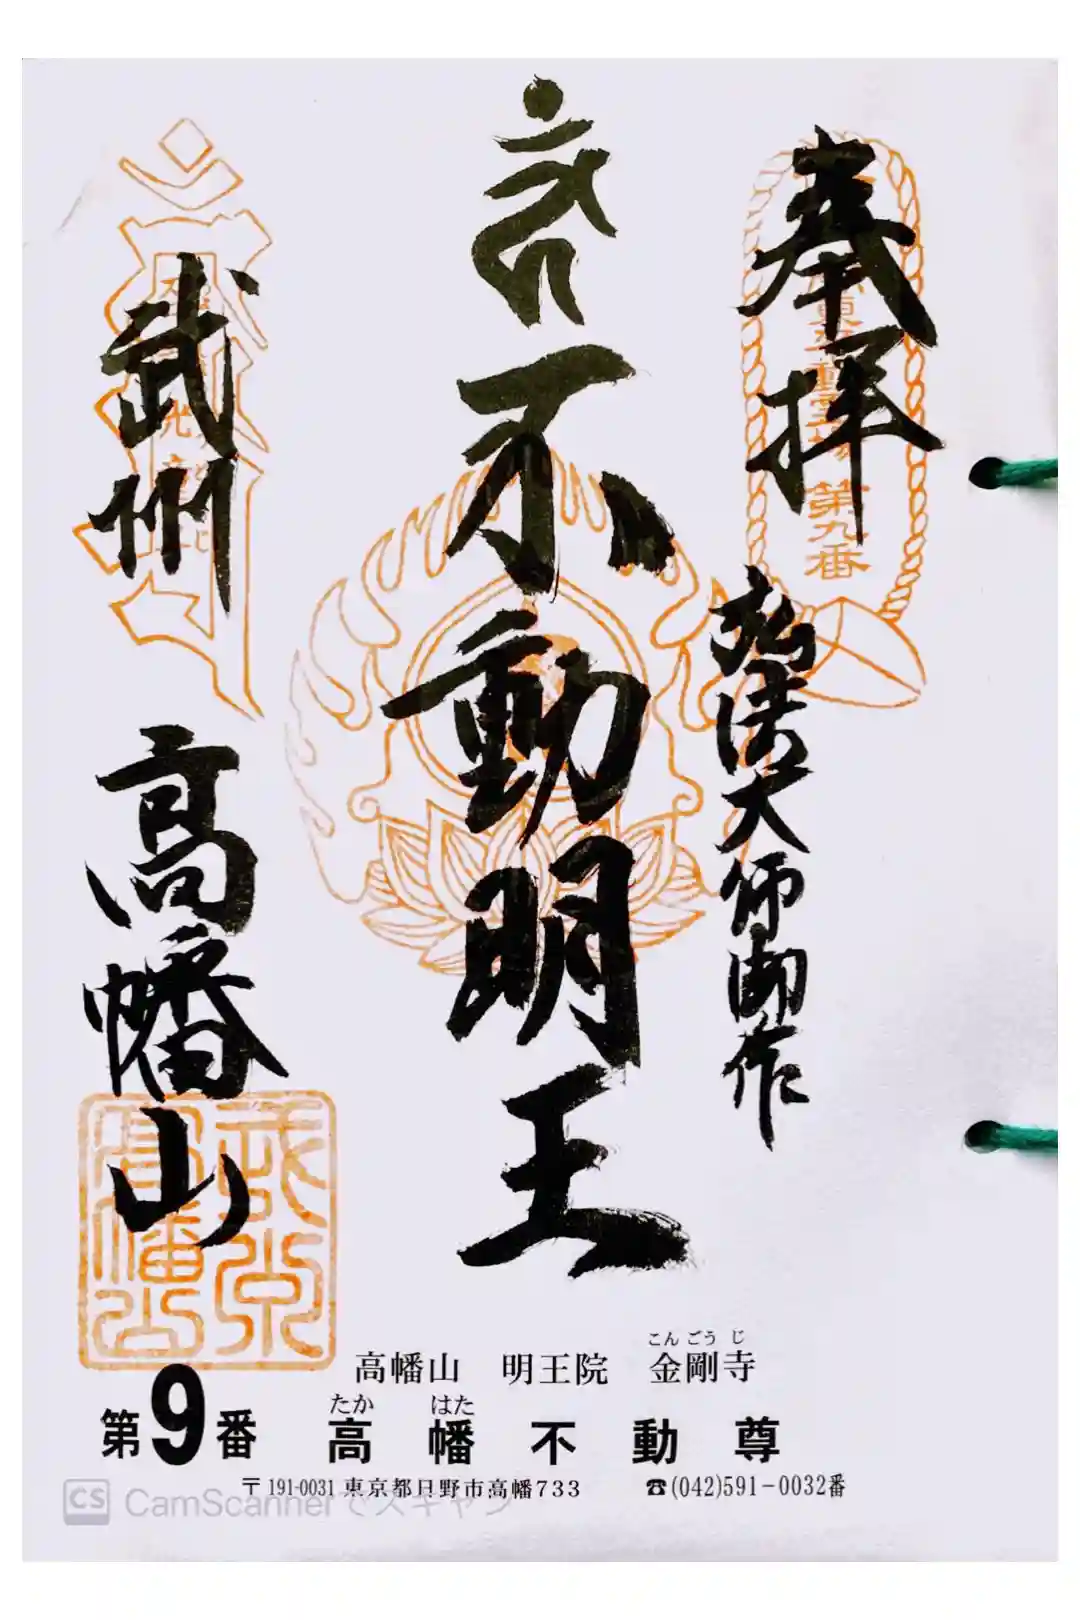 奉拝
第九番
弘法大師御作
不動明王
武州 高幡山
高幡山 明王院 金剛寺
こんごうじ
第9番 高幡不動尊
たか はた
〒191-0031 東京都日野市高幡733 ☎(042)591-0032番
CS CamScannerでスキャン